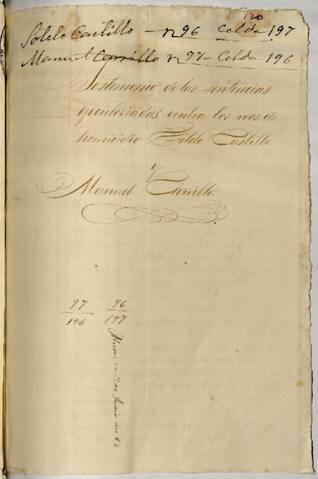 120
Sotelo Castillo — n 96 Celda 197
Manuel Carrillo n 97 — Celda 196
Testimonio de las sentencias
ejecutoriadas contra los reos de
homicidio Sotelo Castillo
y
Manuel Carrillo.
97 96
196 197
Murió en de de 63